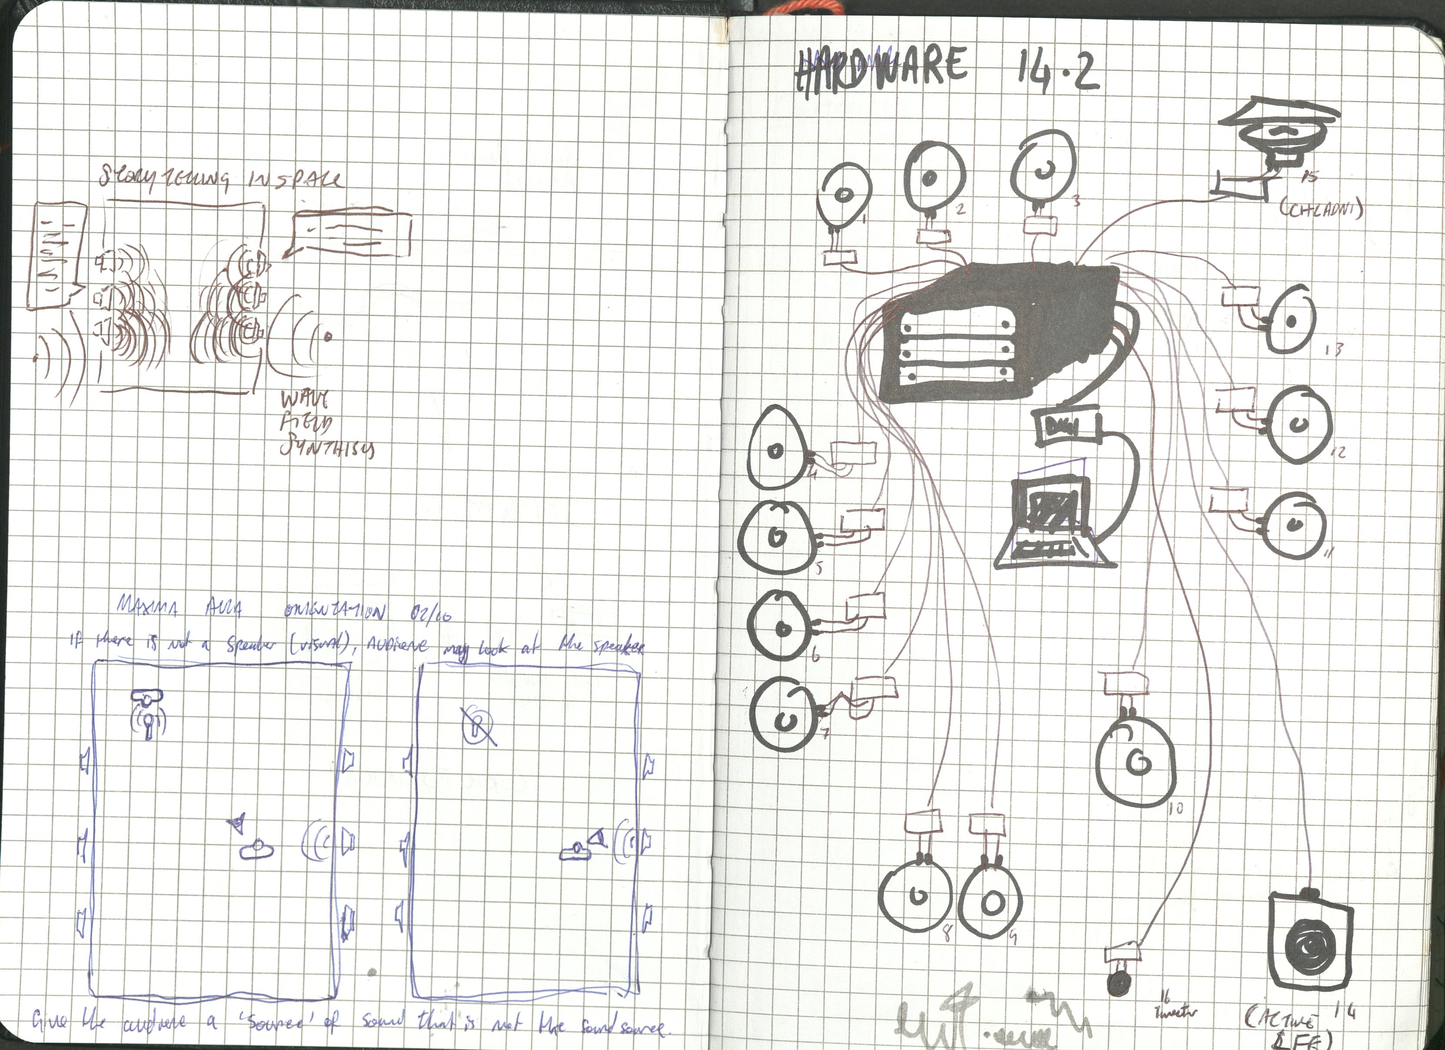 STORYTELLING IN SPACE
WAVE
FIELD
SYNTHISYS
MAXIMA AULA ORIENTATION 02/10
If there is not a speaker (visual), AUDIENCE may look at the speaker
Give the audience a 'source' of sound that is not the soundsource.
HARDWARE 14.2
1
2
3
15
(CHLADNI)
13
12
11
4
5
6
7
DIGI
10
8
9
16
tweeter
14
(ACTIVE
LFE)